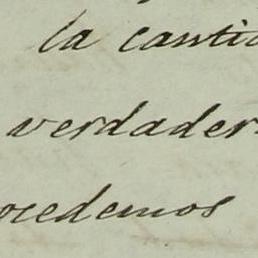 la canti
verdader
ocedemos